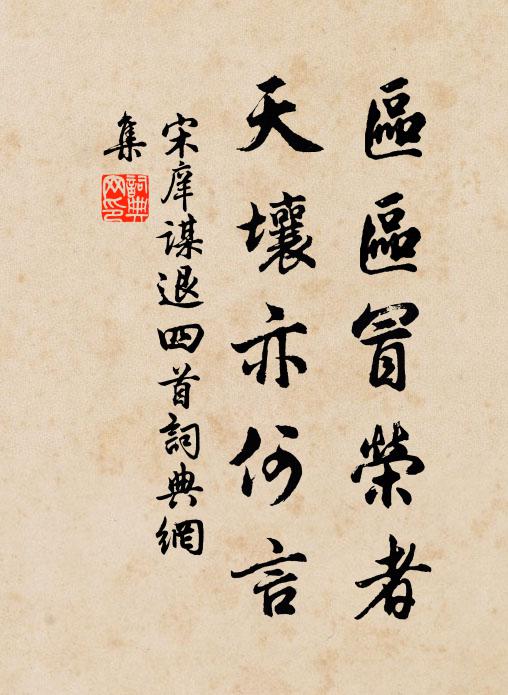 區區冒榮者
天壤亦何言
宋庠謀退四首詞典網
集
詞典
网印